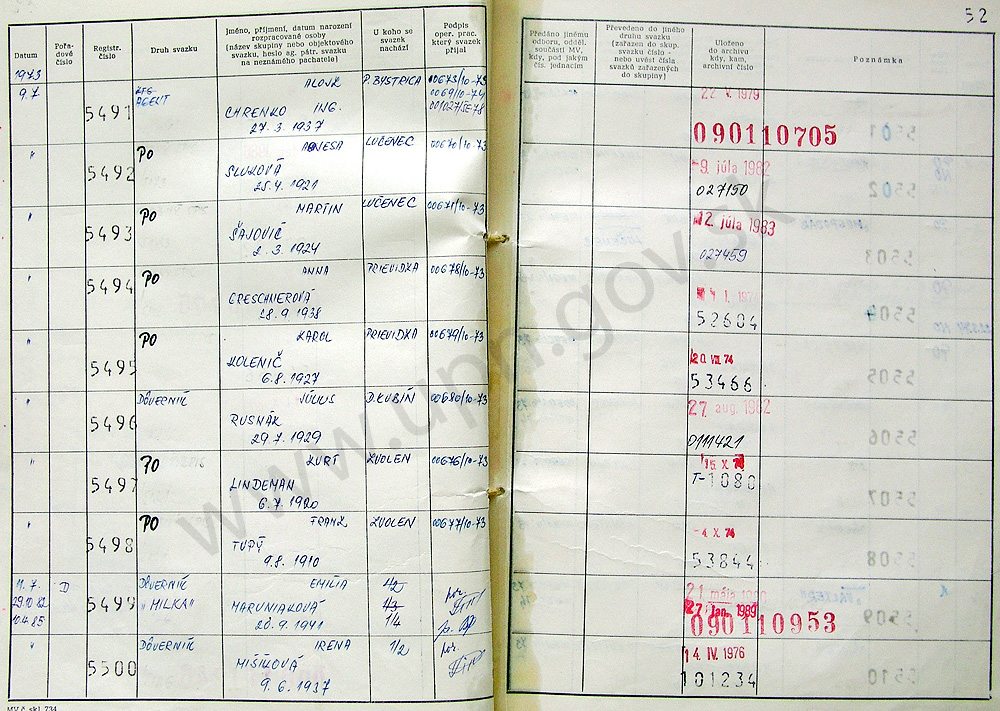 52
Datum
Pořa-
dové
číslo
Registr.
číslo
Druh svazku
Jméno, příjmení, datum narození
rozpracované osoby
(název skupiny nebo objektového
svazku, heslo ag. pátr. svazku
na neznámého pachatele)
U koho se
svazek
nachází
Podpis
oper. prac.
který svazek
přijal
Předáno jinému
odboru, odděl.
součásti MV,
kdy, pod jakým
čís. jednacím
Převedeno do jiného
druhu svazku
(zařazen do skup.
svazku číslo -
nebo uvést čísla
svazků zařazených
do skupiny)
Uloženo
do archivu
kdy, kam,
archivní číslo
Poznámka
1973
9.7
5491
AGENT
ALOJZ
CHRENKO ING.
27.3.1937
P. BYSTRICA
00675/10-73
0069/10-74
22. V. 1979
090110705
"
5492
PO
AGNESA
SLUKOVÁ
25.4.1921
LUČENEC
00670/10-73
-9. júla 1982
027150
"
5493
PO
MARTIN
ŠAJOVIČ
2.3.1924
LUČENEC
00671/10-73
12. júla 1983
027459
"
5494
PO
ANNA
GRESCHNEROVÁ
28.9.1938
PRIEVIDZA
00678/10-73
52604
"
5495
PO
KAROL
KOLENIČ
6.8.1927
PRIEVIDZA
00679/10-73
20. VIII. 74
53466
"
5496
DÔVERNÍK
JÚLIUS
RUSNÁK
29.7.1929
D. KUBÍN
00680/10-73
27. aug. 1982
011421
"
5497
PO
KURT
LINDEMAN
6.7.1920
ZVOLEN
00676/10-73
15. X. 74
T-1080
"
5498
PO
FRANZ
TUPÝ
9.8.1910
ZVOLEN
00677/10-73
-4. X. 74
53844
11.7.
29.10.82
10.4.85
D
5499
DÔVERNÍK
"MILKA"
EMILIA
MARUNIAKOVÁ
20.9.1941
4/2
4/3
1/4
por.
21. mája
27. jan. 1989
090110953
"
5500
DÔVERNÍK
IRENA
MIŠÍKOVÁ
9.6.1937
1/2
por.
14. IV. 1976
101234
MV č. skl. 734
www.upn.gov.sk